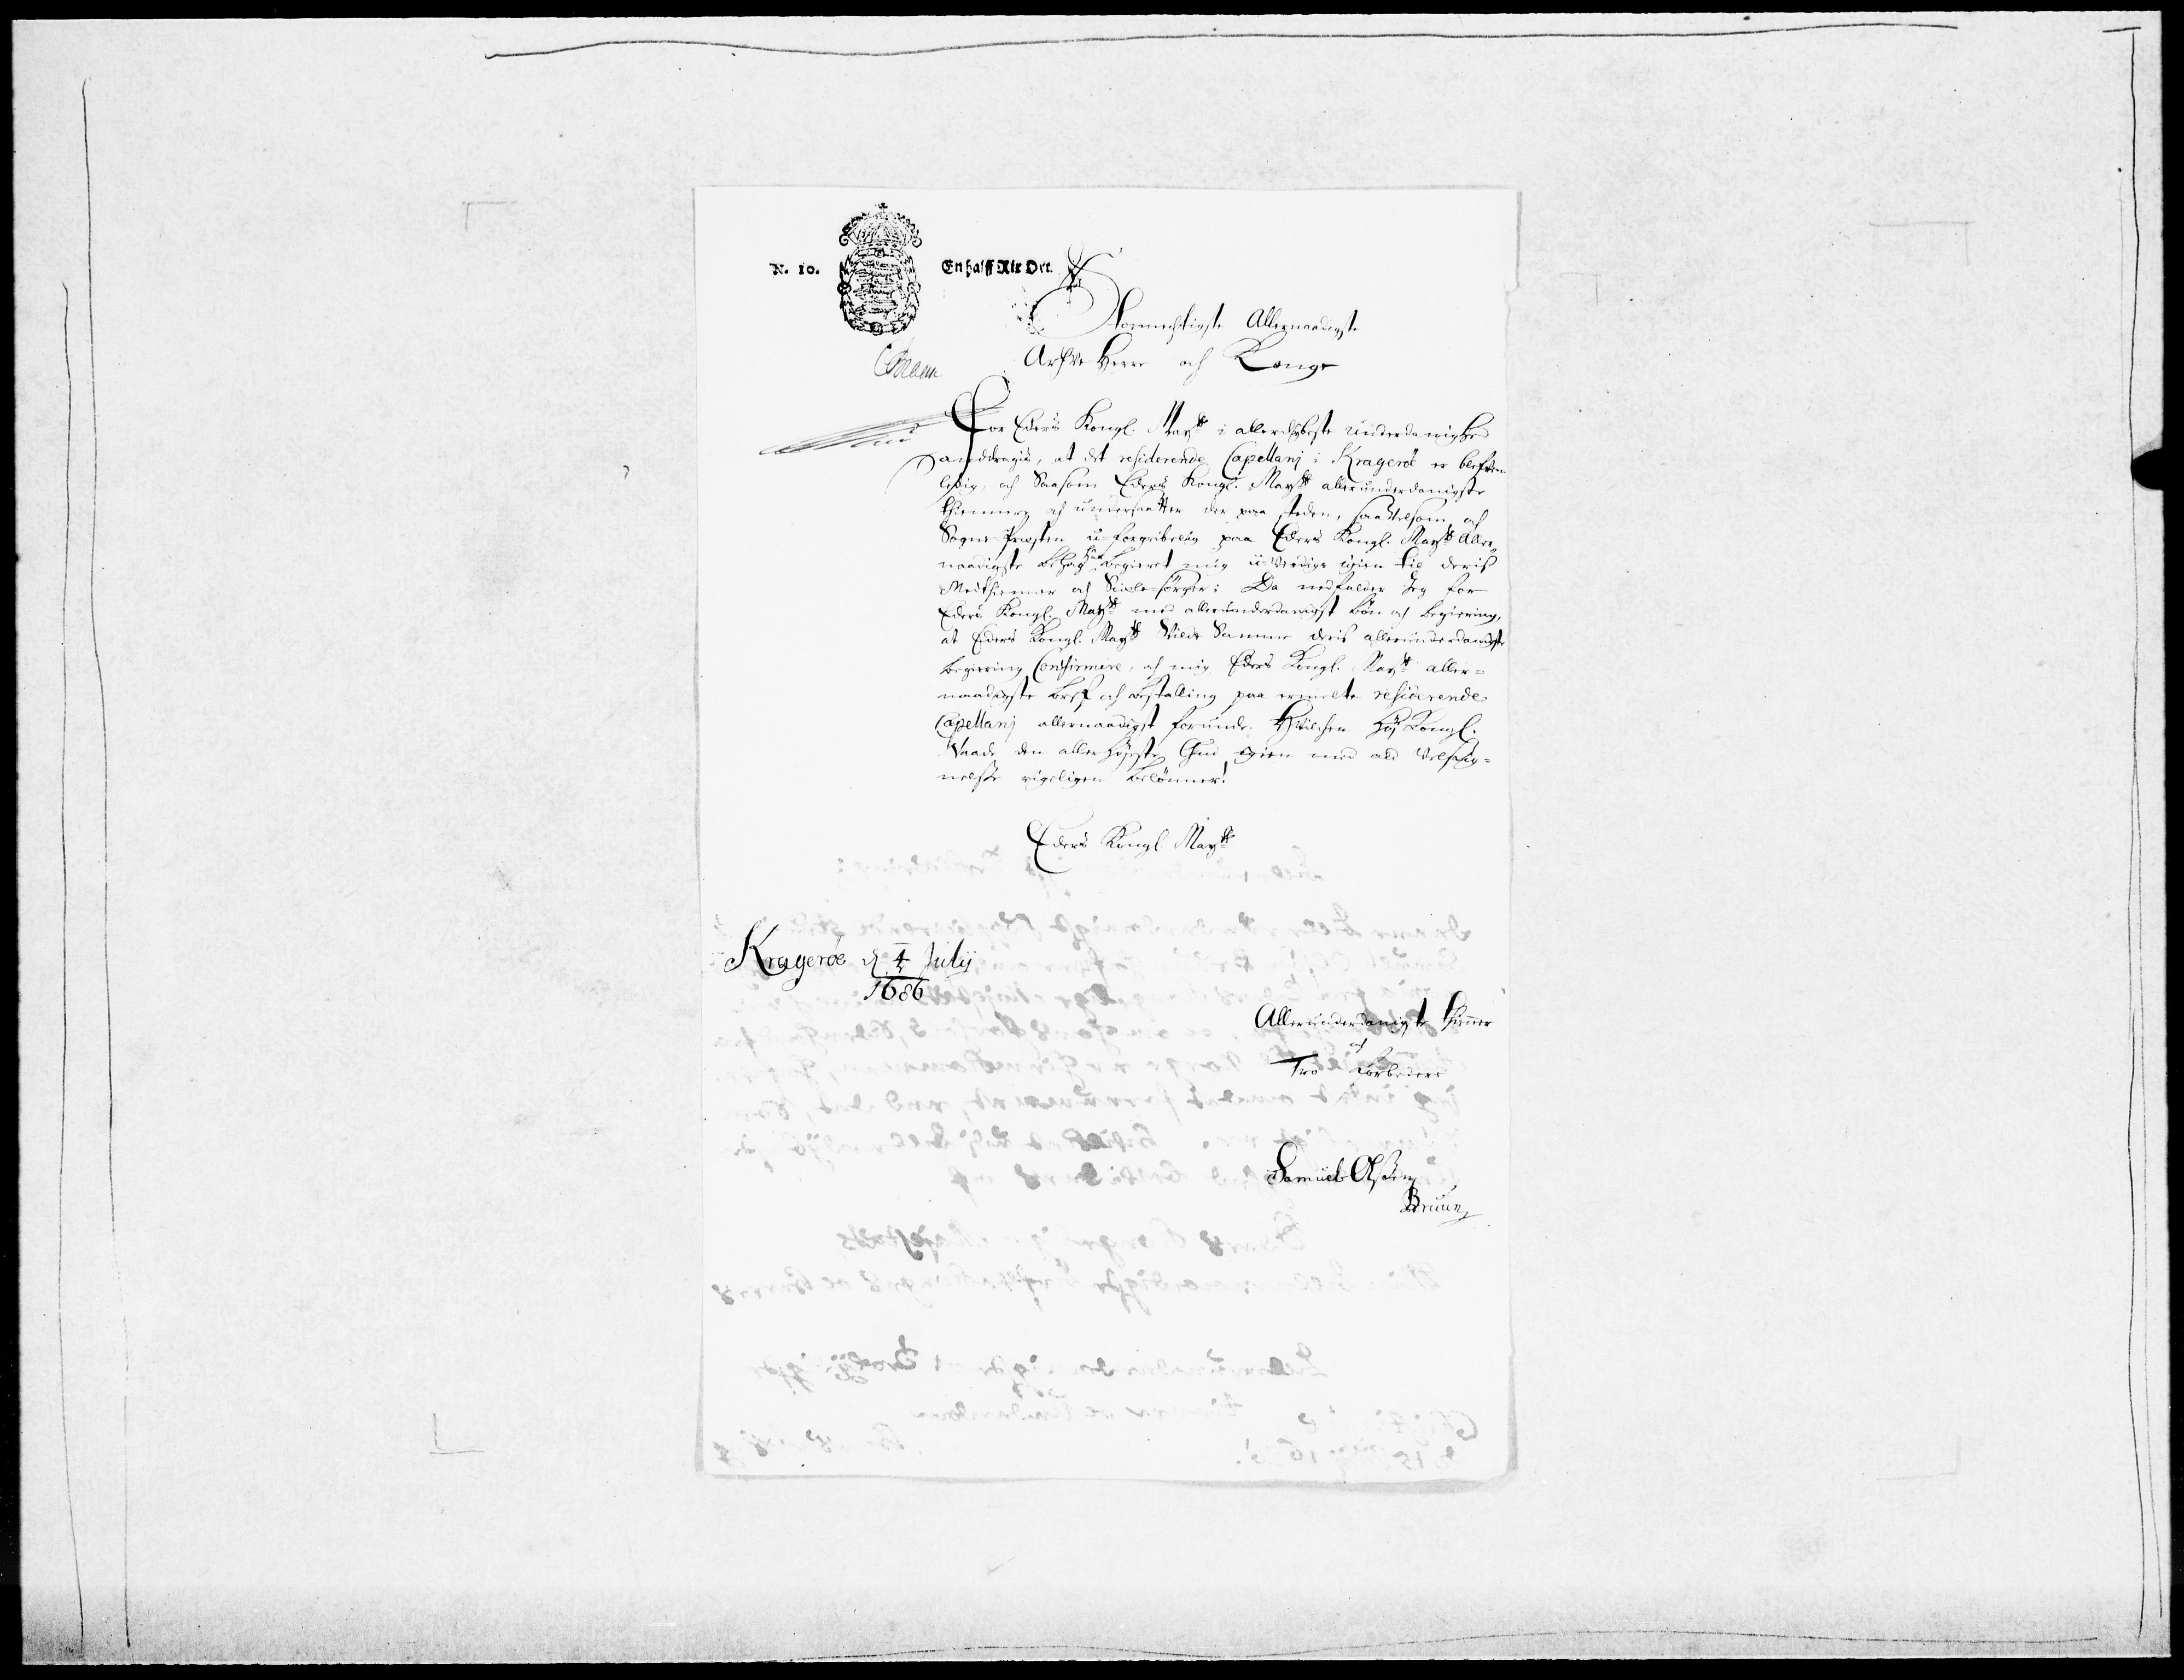 N. 10. En halff Rix Ort.
Stormechtigste Allernaadigste
Arfve Herre och Konge
For Eders Kongl. Maytt i allerdybeste underdanighed
anddragis, at det residerende Capellanj i Krageröe er blefven
ledig, och Saasom Eders Kongl. Maytt allerunderdanigste
thiennere och undersaatter der paa steden, saavelsom och
Sogne-Præsten u-forgribelig paa Eders Kongl. Maytt Aller-
naadigste behag har begieret mig u-verdige igien til deris
Medthienner och Siælesörger: Da nedfalder Jeg for
Eders Kongl. Maytt med allerunderdanigst bön och begiering,
at Eders Kongl. Maytt Vilde Samme deris allerunderdanigste
begiering Confirmere, och mig Eders Kongl. Maytt aller=
naadigste bref och bestalling paa ermelte residerende
Capellanj allernaadigst forunde. Hvilchen höj Kongl.
Naade den allerhöjeste Gud igien med ald Velsig=
nelsse rigeligen belönner!
Eders Kongl Maytts
Krageröe d 4 Julij
1686
Allerunderdanigste thienner
och
Tro forbedere
Samuel Olssen
Bruun